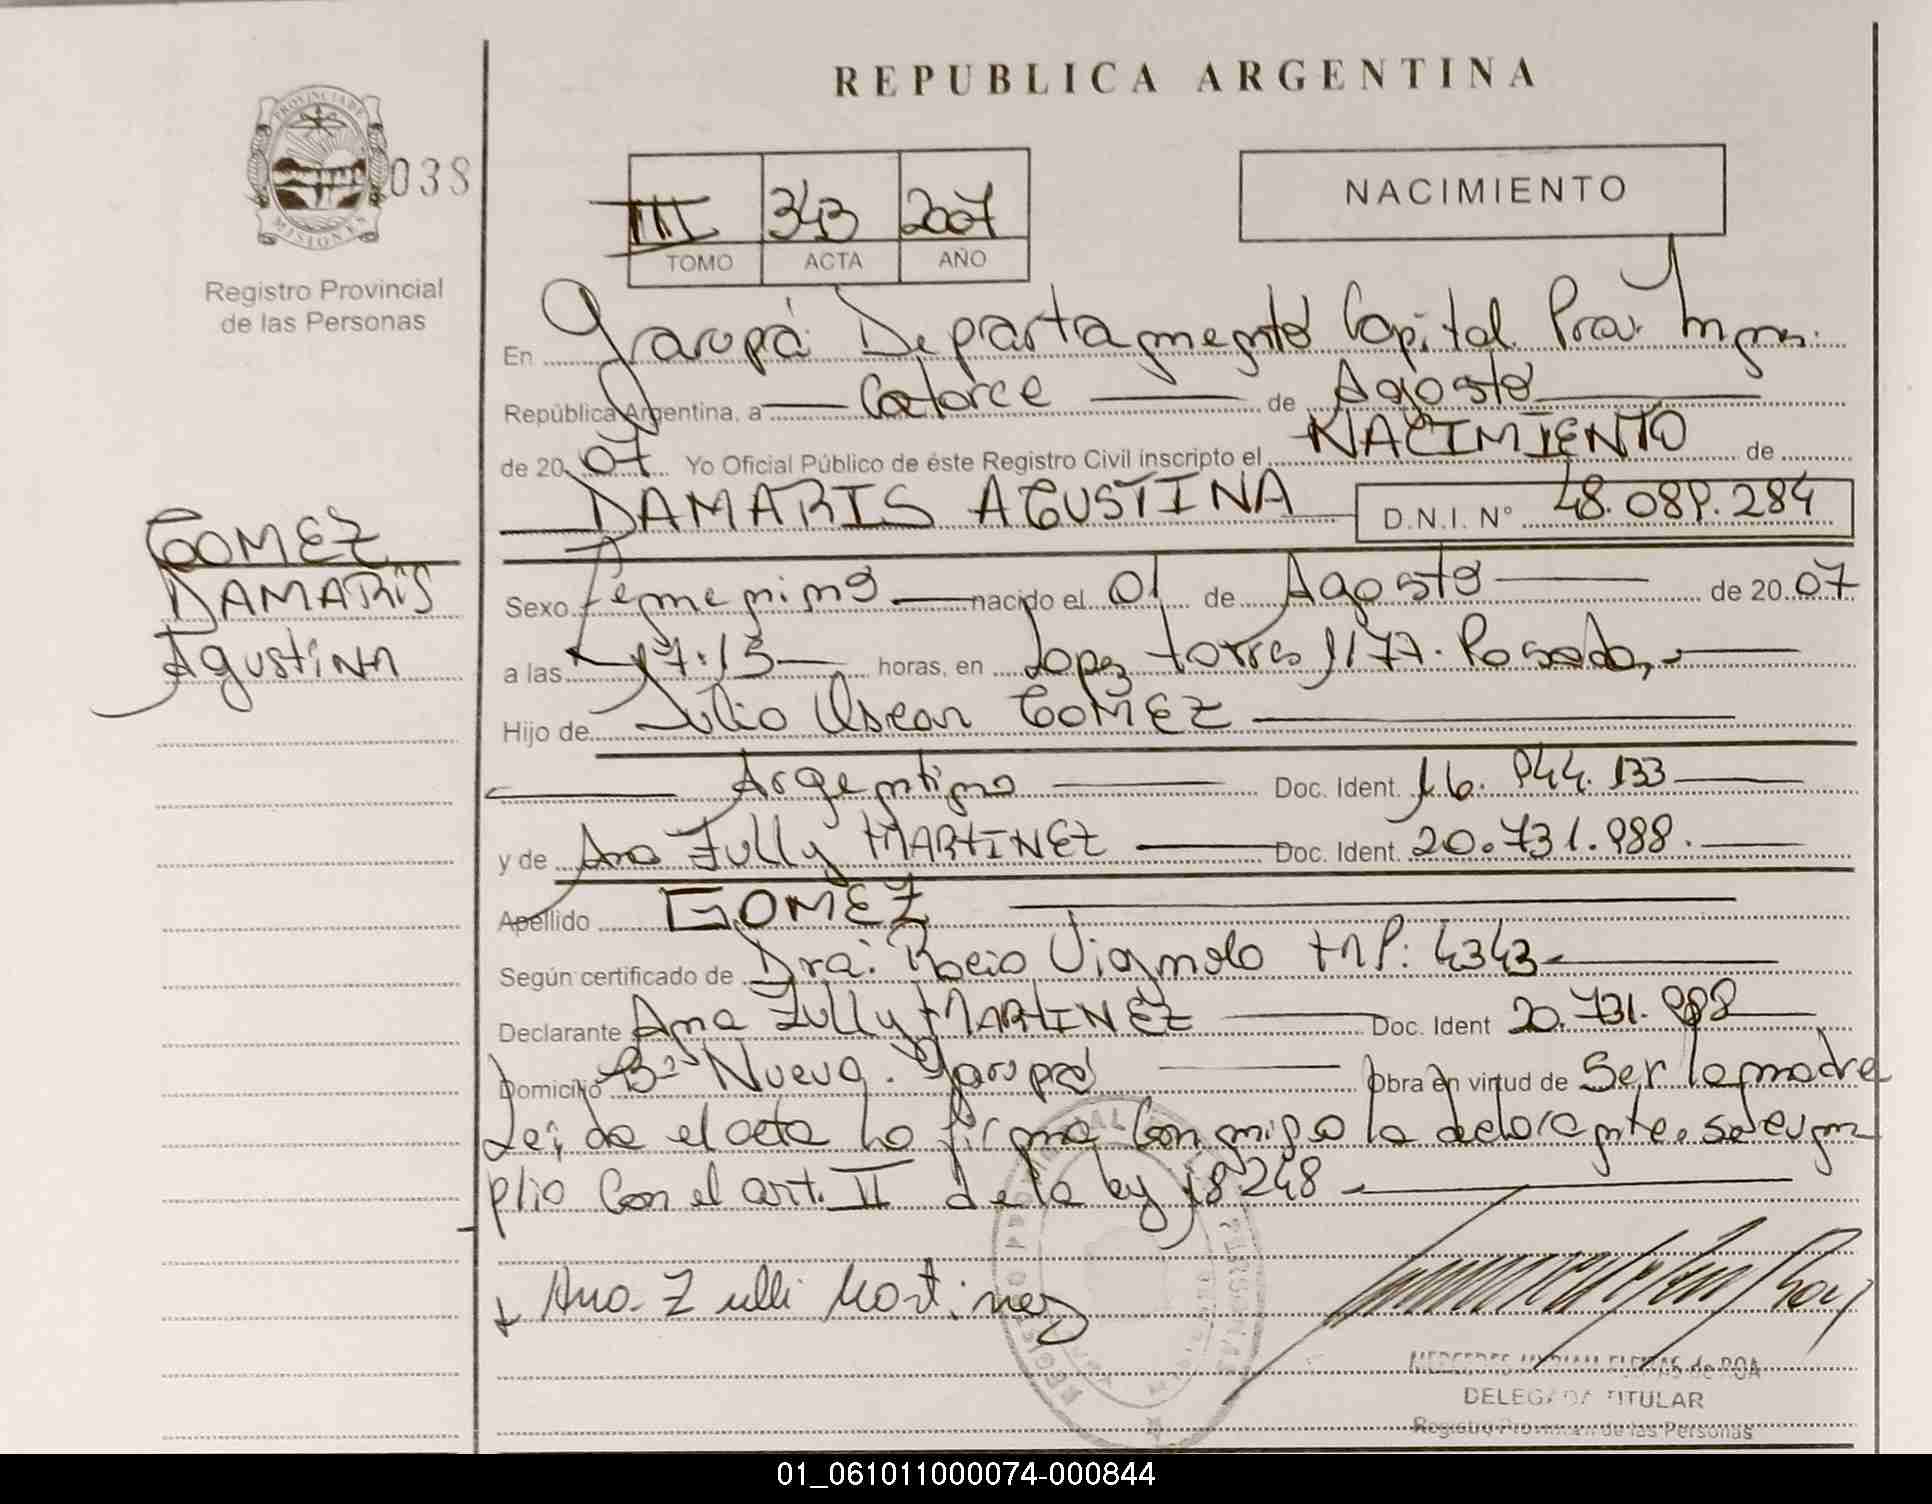 REPUBLICA ARGENTINA
PROVINCIA DE
MISIONES
038
Registro Provincial
de las Personas
III 343 2007
TOMO ACTA AÑO
NACIMIENTO
En Garupá Departamento Capital Pcia. Mnes.
República Argentina, a Catorce de Agosto
de 20 07 Yo Oficial Público de éste Registro Civil inscripto el NACIMIENTO de
DAMARIS AGUSTINA D.N.I. Nº 48.089.284
GOMEZ
DAMARIS
Agustina
Sexo femenino nacido el 01 de Agosto de 20 07
a las 17:15 horas, en Lopez torres 1177. Posadas
Hijo de Julio Oscar GOMEZ
Argentino Doc. Ident. 16.944.133
y de Ana Zully MARTINEZ Doc. Ident. 20.731.988.
Apellido GOMEZ
Según certificado de Dra. Rocio MP: 4343
Declarante Ana Zully MARTINEZ Doc. Ident 20.731.988
Domicilio Bº Nueva Garupá Obra en virtud de Ser la madre
Leida el acta la firma Conmigo la declarante. se cum
plio Con el art. II de la ley 18248
Ana Zulli Martinez
MERCEDES MYRIAM de ROA
DELEGADA TITULAR
Registro Provincial de las Personas
01_061011000074-000844